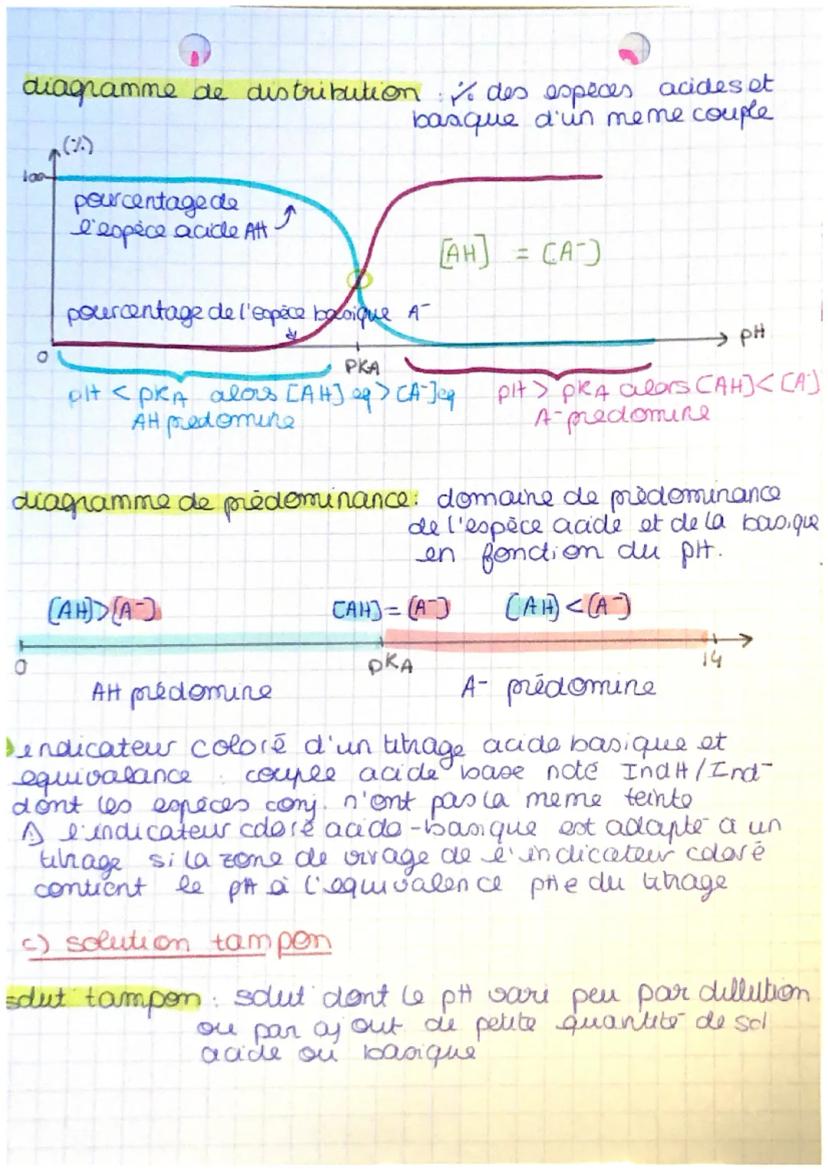 diagramme de distribution : % des espèces acides et
basique d'un meme couple
(%)
100
pourcentage de
l'espèce acide AH
[AH] = [A⁻]
pourcentage de l'espèce basique A⁻
pH
0
PKA
pH < pKA alors [AH] eq > [A⁻]eq
AH predomine
pH > pKA alors [AH] < [A⁻]
A⁻ predomine
diagramme de prédominance : domaine de prèdominance
de l'espèce acide et de la basique
en fonction du pH.
[AH]>[A⁻]
[AH] = [A⁻]
[AH] < [A⁻]
0
pKA
14
AH prédomine
A⁻ prédomine
indicateur coloré d'un titrage acide basique et
equivalance : couple acide base noté IndH/Ind⁻
dont les espèces conj. n'ont pas la meme teinte
⚠ l'indicateur coloré acido-basique est adapté a un
titrage si la zone de virage de l'indicateur coloré
contient le pH à l'equivalence pHe du titrage
c) solution tampon
solut° tampon : solut° dont le pH vari peu par dillution
ou par ajout de petite quantité de sol
acide ou basique